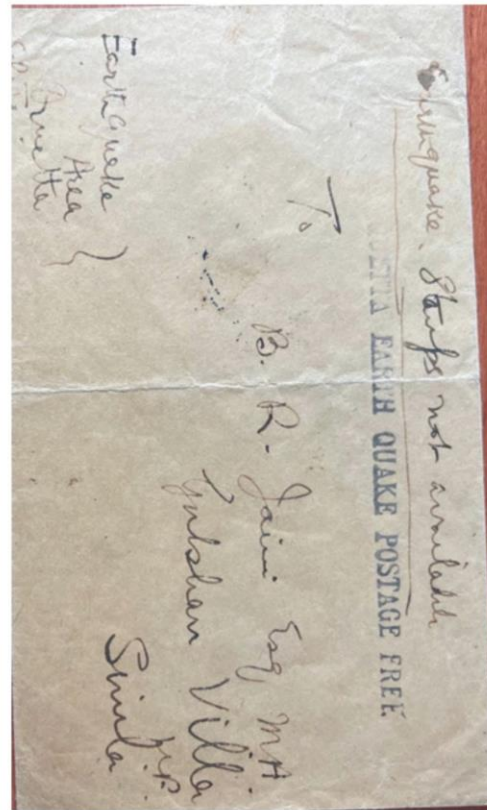 Earthquake. Stamps not available
QUETTA EARTH QUAKE POSTAGE FREE
To
B. R. Jaini Esq MA
Gulshan Villa
Simla
Earthquake
Area
Quetta